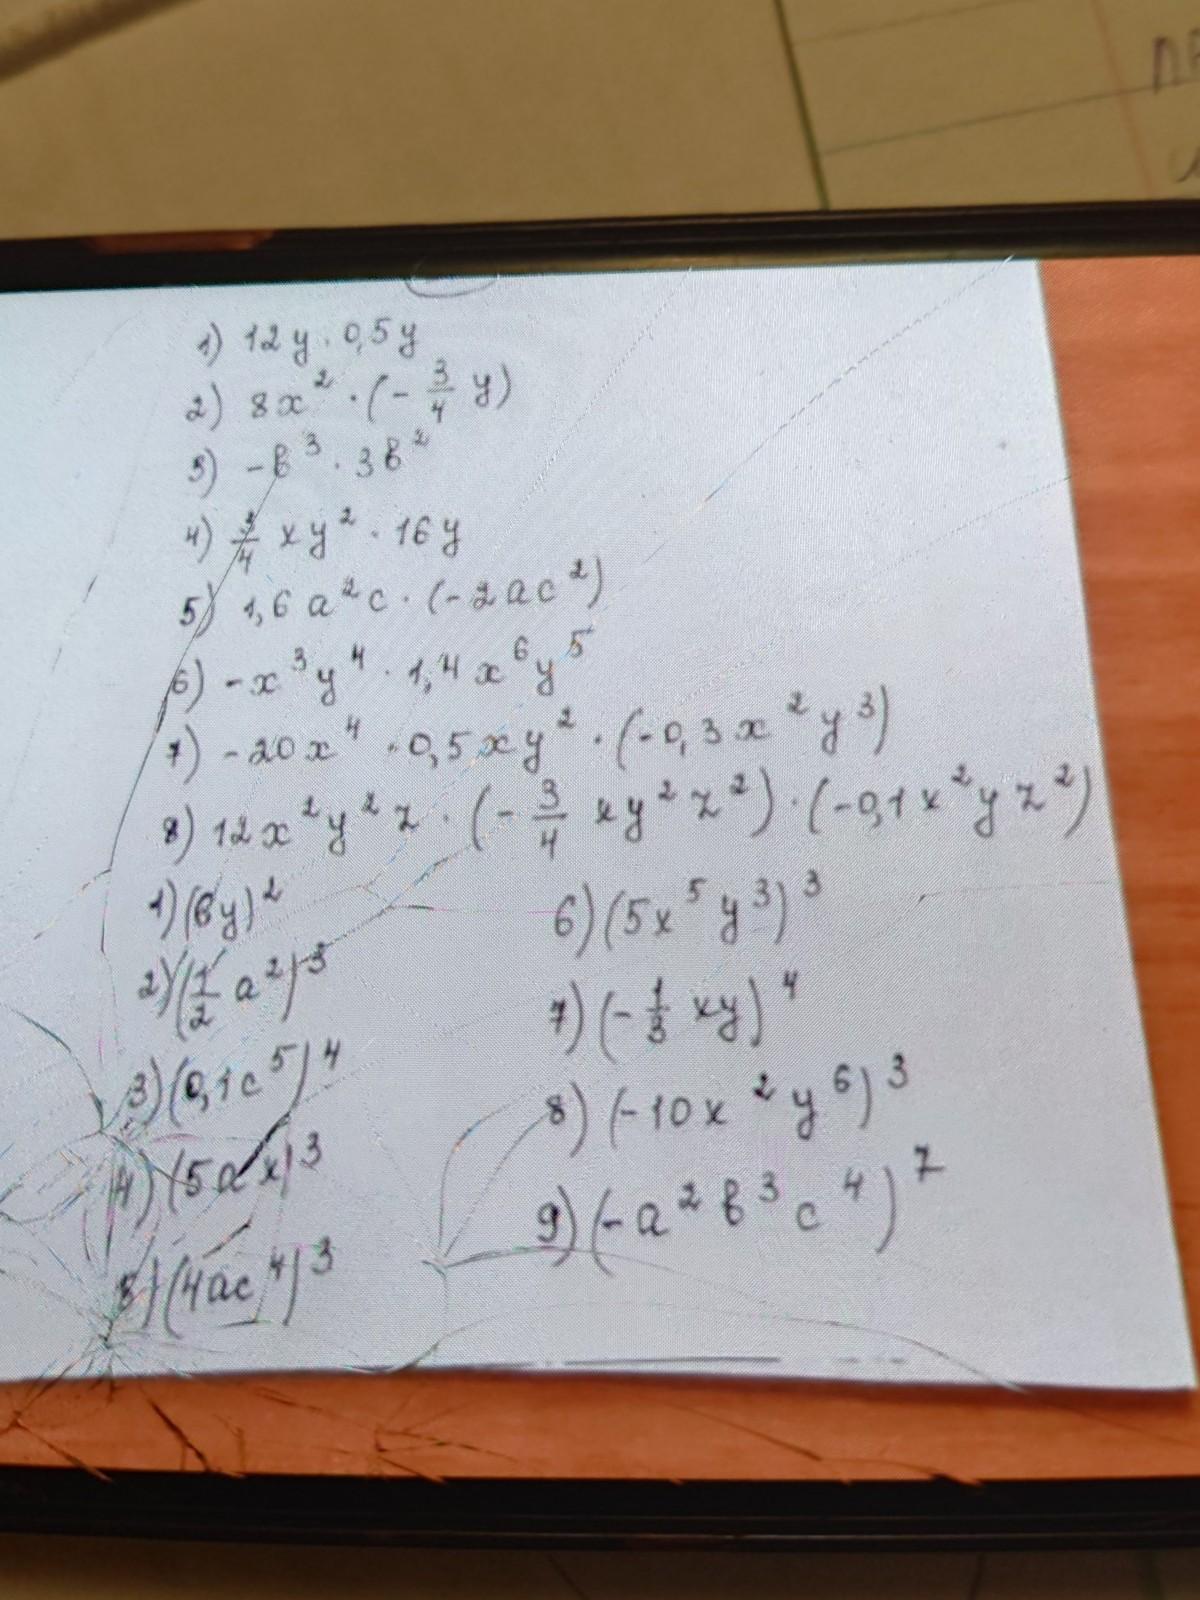 1) 12y · 0,5y
2) 8x² · (- 3/4 y)
3) -b³ · 3b²
4) 3/4 xy² · 16y
5) 1,6a²c · (-2ac²)
6) -x³y⁴ · 1,4x⁶y⁵
7) -20x⁴ · 0,5xy² · (-0,3x²y³)
8) 12x²y²z · (- 3/4 xy²z²) · (-0,1x²yz²)
1) (6y)²
2) (1/2 a²)³
3) (0,1c⁵)⁴
4) (5ax)³
5) (4ac⁴)³
6) (5x⁵y³)³
7) (- 1/3 xy)⁴
8) (-10x²y⁶)³
9) (-a²b³c⁴)⁷